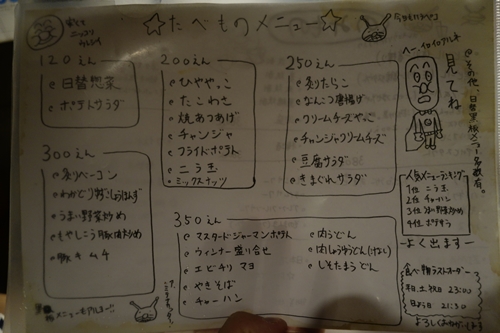 ☆たべものメニュー☆
120えん
日替惣菜
ポテトサラダ
200えん
ひややっこ
たこわさ
焼あつあげ
チャンジャ
フライドポテト
ニラ玉
ミックスナッツ
250えん
炙りたらこ
なんこつ唐揚げ
クリームチーズやっこ
チャンジャクリームチーズ
豆腐サラダ
きまぐれサラダ
見てね
300えん
炙りベーコン
うまい野菜炒め
豚キムチ
350えん
マスタードジャーマンポテト
ウィンナー盛り合せ
エビチリマヨ
やきそば
チャーハン
肉うどん
肉しょうゆうどん
しそたまうどん
人気メニューランキング
1位 ニラ玉
2位 チャーハン
3位 うまい野菜炒め
4位 ポテサラ
よく出ます
食べ物ラストオーダー
平日、土、祝日 23:00
日よう日 21:30